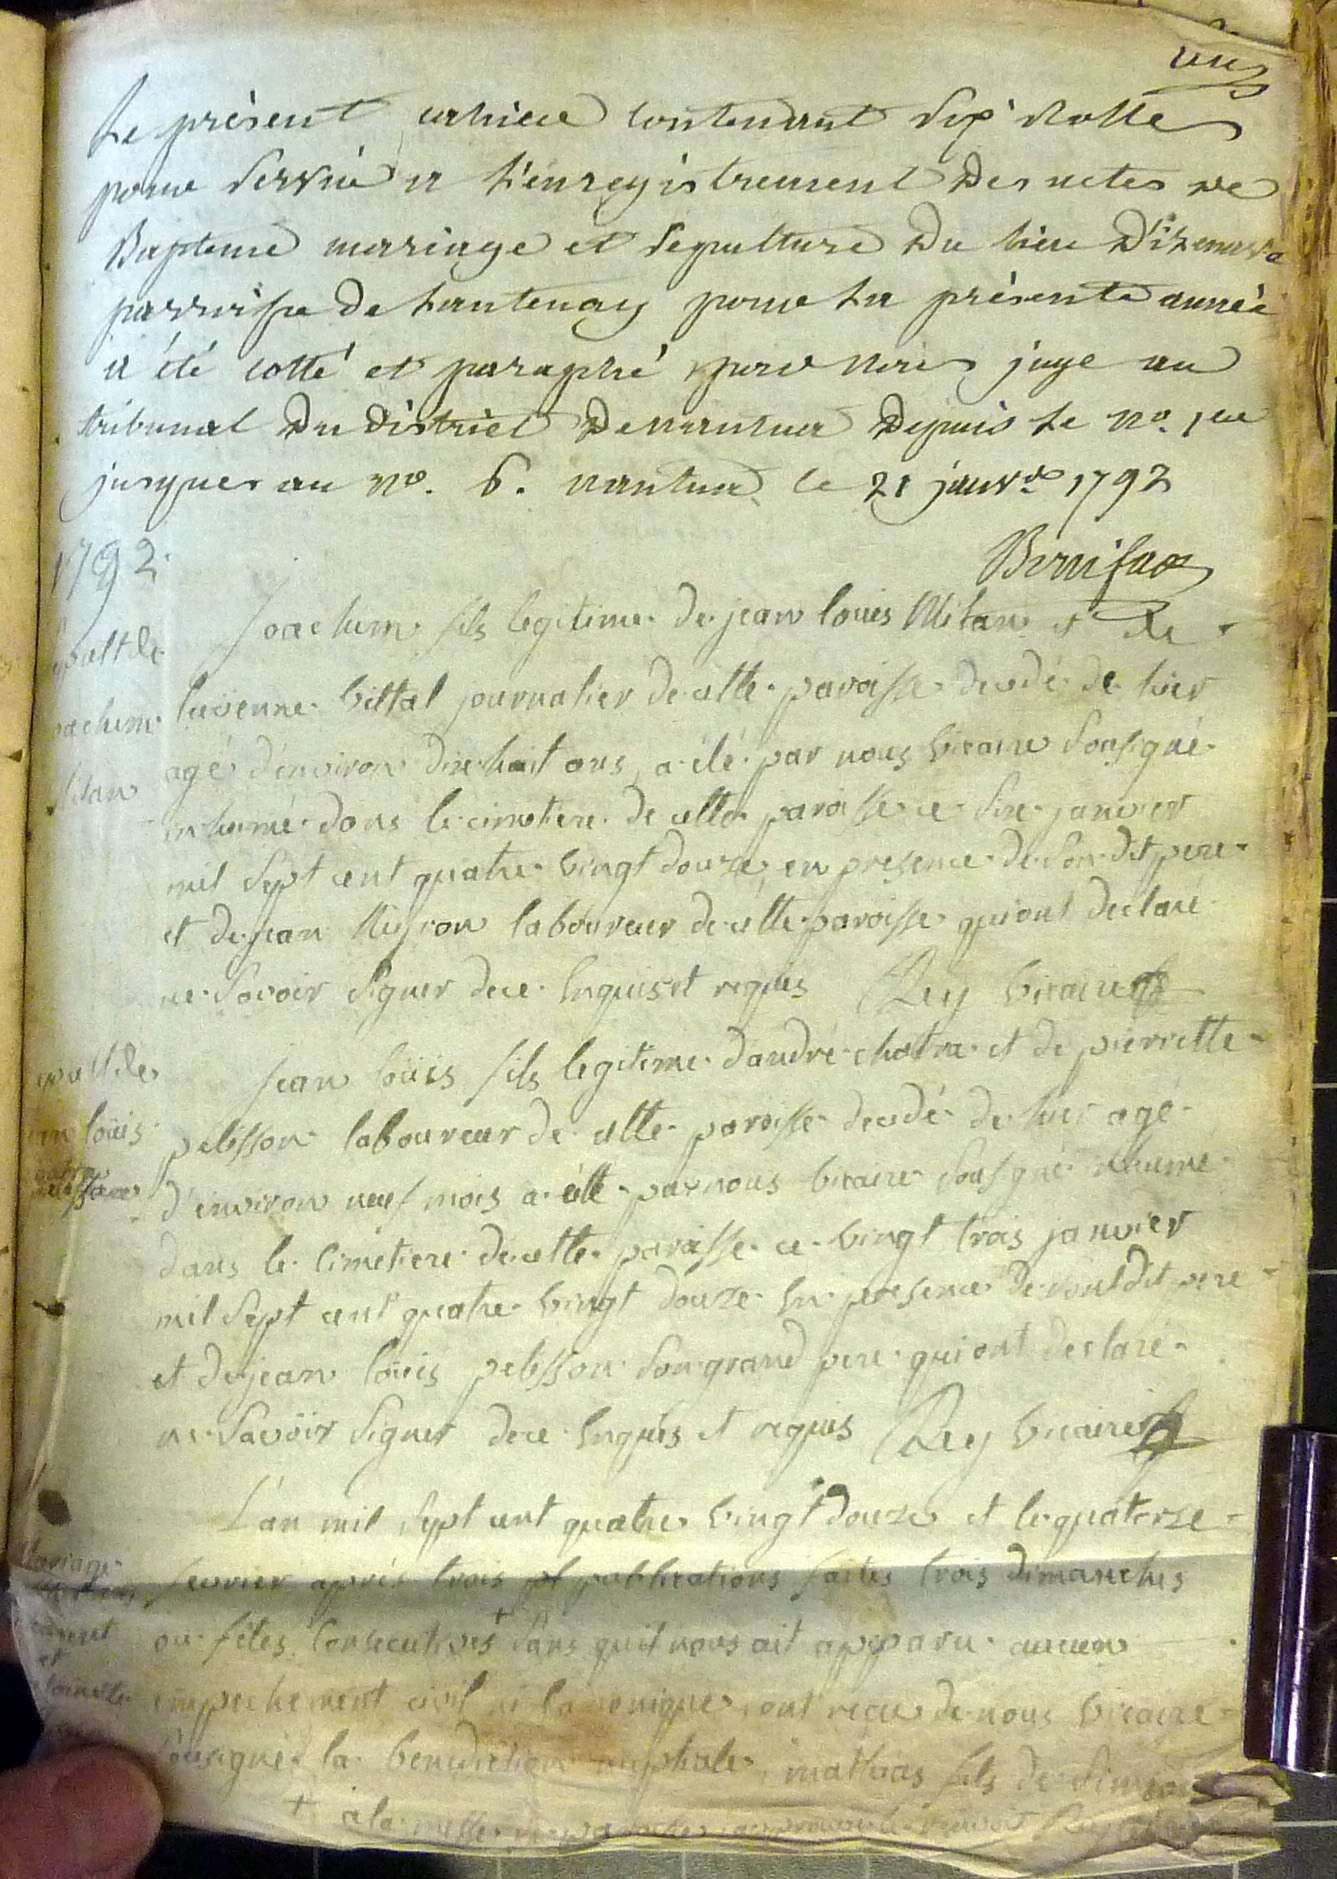 un
Le présent cahier contenant six rolle
pour servir a l'enregistrement des actes de
Bapteme mariage et sepulture du lieu D'izenave
parroisse de Lantenay pour la présente année
a été cotté et paraphé par nous juge au
tribunal du district de nantua depuis le no. 1er
jusques au no. 6. nantua le 21 janvr. 1792
Bonifax
1792.
Joachim fils legitime de jean louis Mitan et de
huvenne vittal journalier de cette paroisse decedé de hier
agé d'environ dix huit ans, a été par nous vicaire soussigné
inhumé dans le cimetiere de cette paroisse ce six janvier
mil sept cent quatre vingt douze, en presence de son dit pere
et de jean Nigron laboureur de cette paroisse qui ont declaré
ne savoir signer de ce enquis et requis Rey vicaire
sepult de
joachim
Mitan
Jean louis fils legitime d'andré chatra et de pierrette
pelisson laboureur de cette paroisse decedé de hier agé
d'environ neuf mois a été par nous vicaire soussigné inhumé
dans le cimetiere de cette paroisse ce vingt trois janvier
mil sept cent quatre vingt douze en presence de sont dit pere
et de jean louis pelisson son grand pere qui ont declaré
ne savoir signer de ce enquis et requis Rey vicaire
sepult de
jean louis
L'an mil sept cent quatre vingt douze et le quatorze
fevrier après trois publications faites trois dimanches
ou fêtes consecutives + sans qu'il nous ait apparu aucun
empechement civil ni canonique, ont recu de nous vicaire
soussigné la benediction nuptiale, mathias fils de
Mariage
et
+ a la messe de paroisse